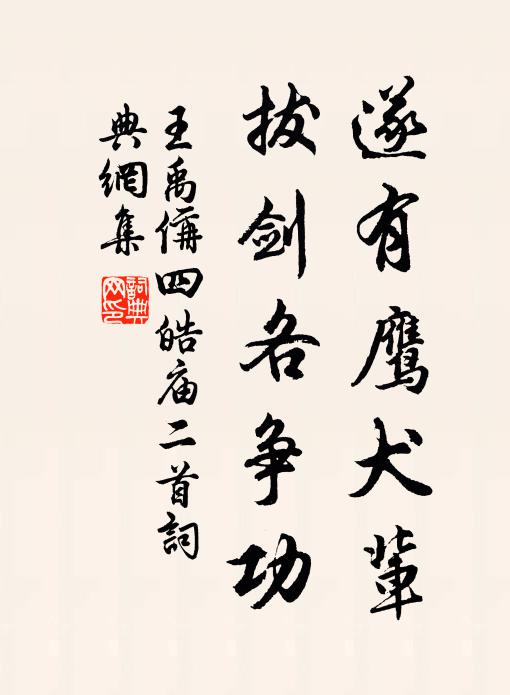 遂有鹰犬輩
拔剑各争功
王禹偁四皓庙二首詞
典網集
詞典
网印